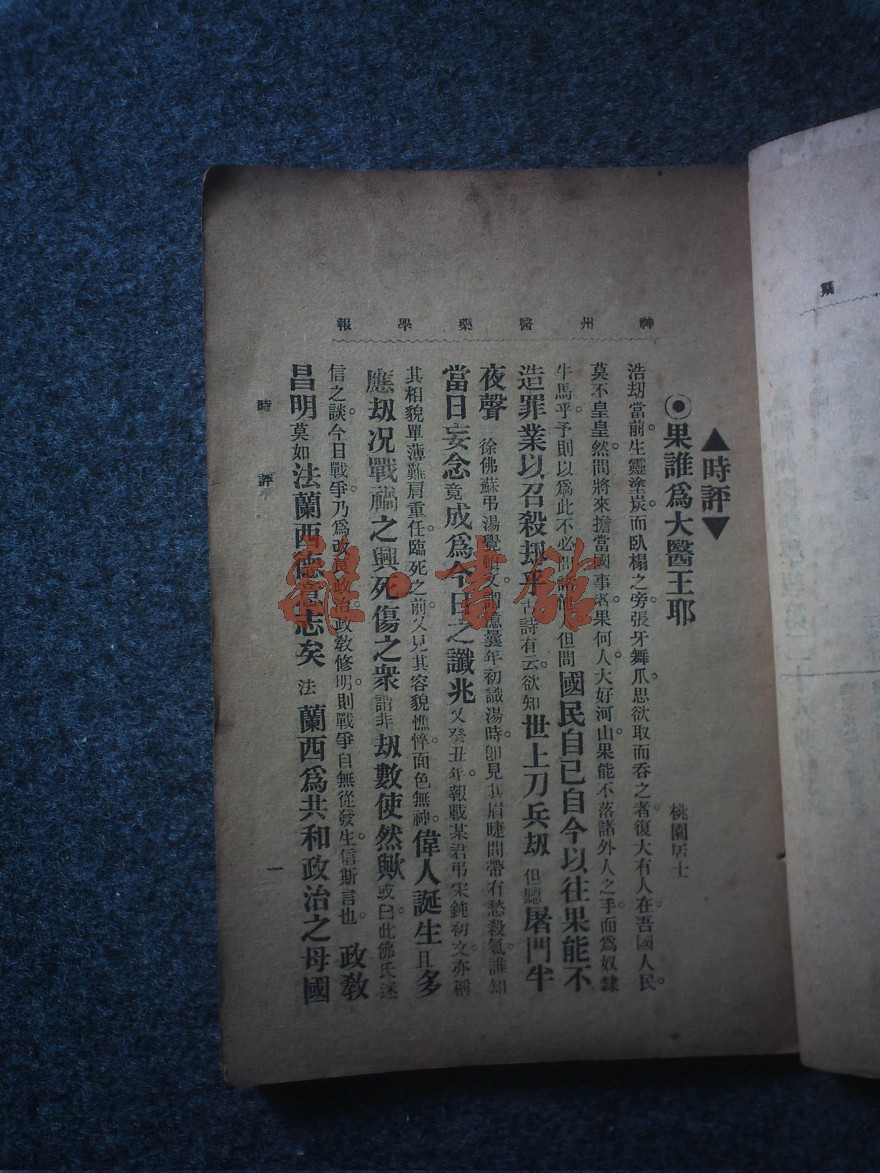 神州醫藥學報
▲時評▼
◉果誰爲大醫王耶
桃園居士
浩刧當前。生靈塗炭。而臥榻之旁。張牙舞爪。思欲取而吞之者。復大有人在。吾國人民。
莫不皇皇然問將來擔當國事者。果何人。大好河山。果能不落諸外人之手。而爲奴隸
牛馬乎。予則以爲此不必問諸他。但問國民自已自今以往果能不
造罪業以召殺刼乎古詩有云。欲知世上刀兵刼但聽屠門半
夜聲 徐佛蘇弔湯覺頓文謂憶曩年初識湯時。卽見其眉睫間帶有愁殺氣。誰知
當日妄念竟成爲今日之讖兆又癸丑年報戰某君弔宋鈍初文。亦稱
其相貌單薄。難肩重任。臨死之前。又見其容貌憔悴。面色無神。偉人誕生且多
應刼况戰禍之興死傷之衆謂非刼數使然歟或曰此佛氏迷
信之談。今日戰爭乃爲改良政治。政敎修明。則戰爭自無從發生。信斯言也。政敎
昌明莫如法蘭西德意志矣法蘭西爲共和政治之母國
時評
一
雜·書館